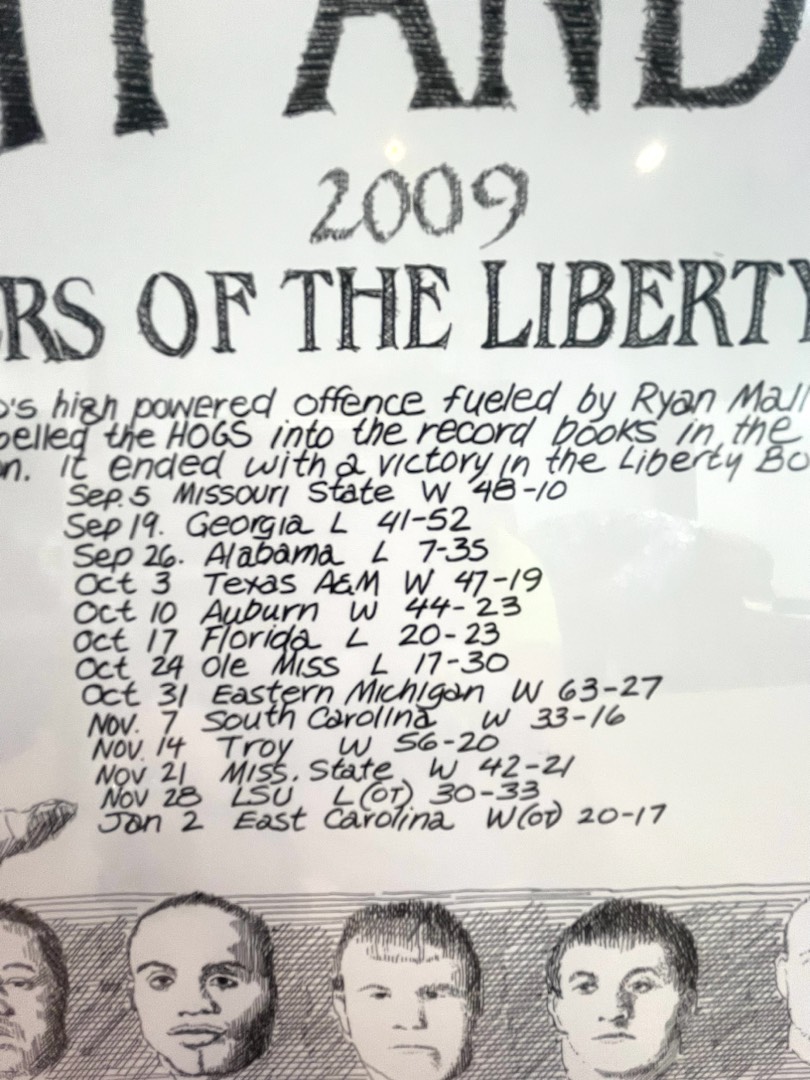 AND
2009
RS OF THE LIBERTY
o's high powered offence fueled by Ryan Mall
pelled the HOGS into the record books in the
n. it ended with a victory in the Liberty Bo
Sep. 5 Missouri State W 48-10
Sep 19. Georgia L 41-52
Sep 26. Alabama L 7-35
Oct 3 Texas A&M W 47-19
Oct 10 Auburn W 44-23
Oct 17 Florida L 20-23
Oct 24 Ole Miss L 17-30
Oct 31 Eastern Michigan W 63-27
Nov. 7 South Carolina W 33-16
Nov. 14 Troy W 56-20
Nov 21 Miss. State W 42-21
Nov 28 LSU L(OT) 30-33
Jan 2 East Carolina W(OT) 20-17